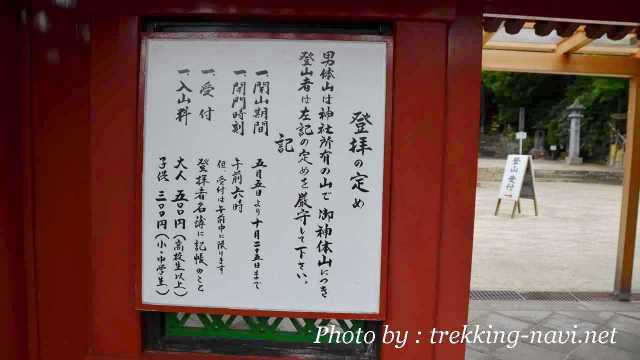 登拝の定め
男体山は神社所有の山で御神体山につき
登山者は左記の定めを厳守して下さい。
記
一、開山期間 五月五日より十月二十五日まで
一、開門時刻 午前六時
但、受付は午前中に限ります
一、受付 登拝者名簿に記帳のこと
一、入山料 大人 五〇〇円(高校生以上)
子供 三〇〇円(小・中学生)
登山受付
Photo by : trekking-navi.net